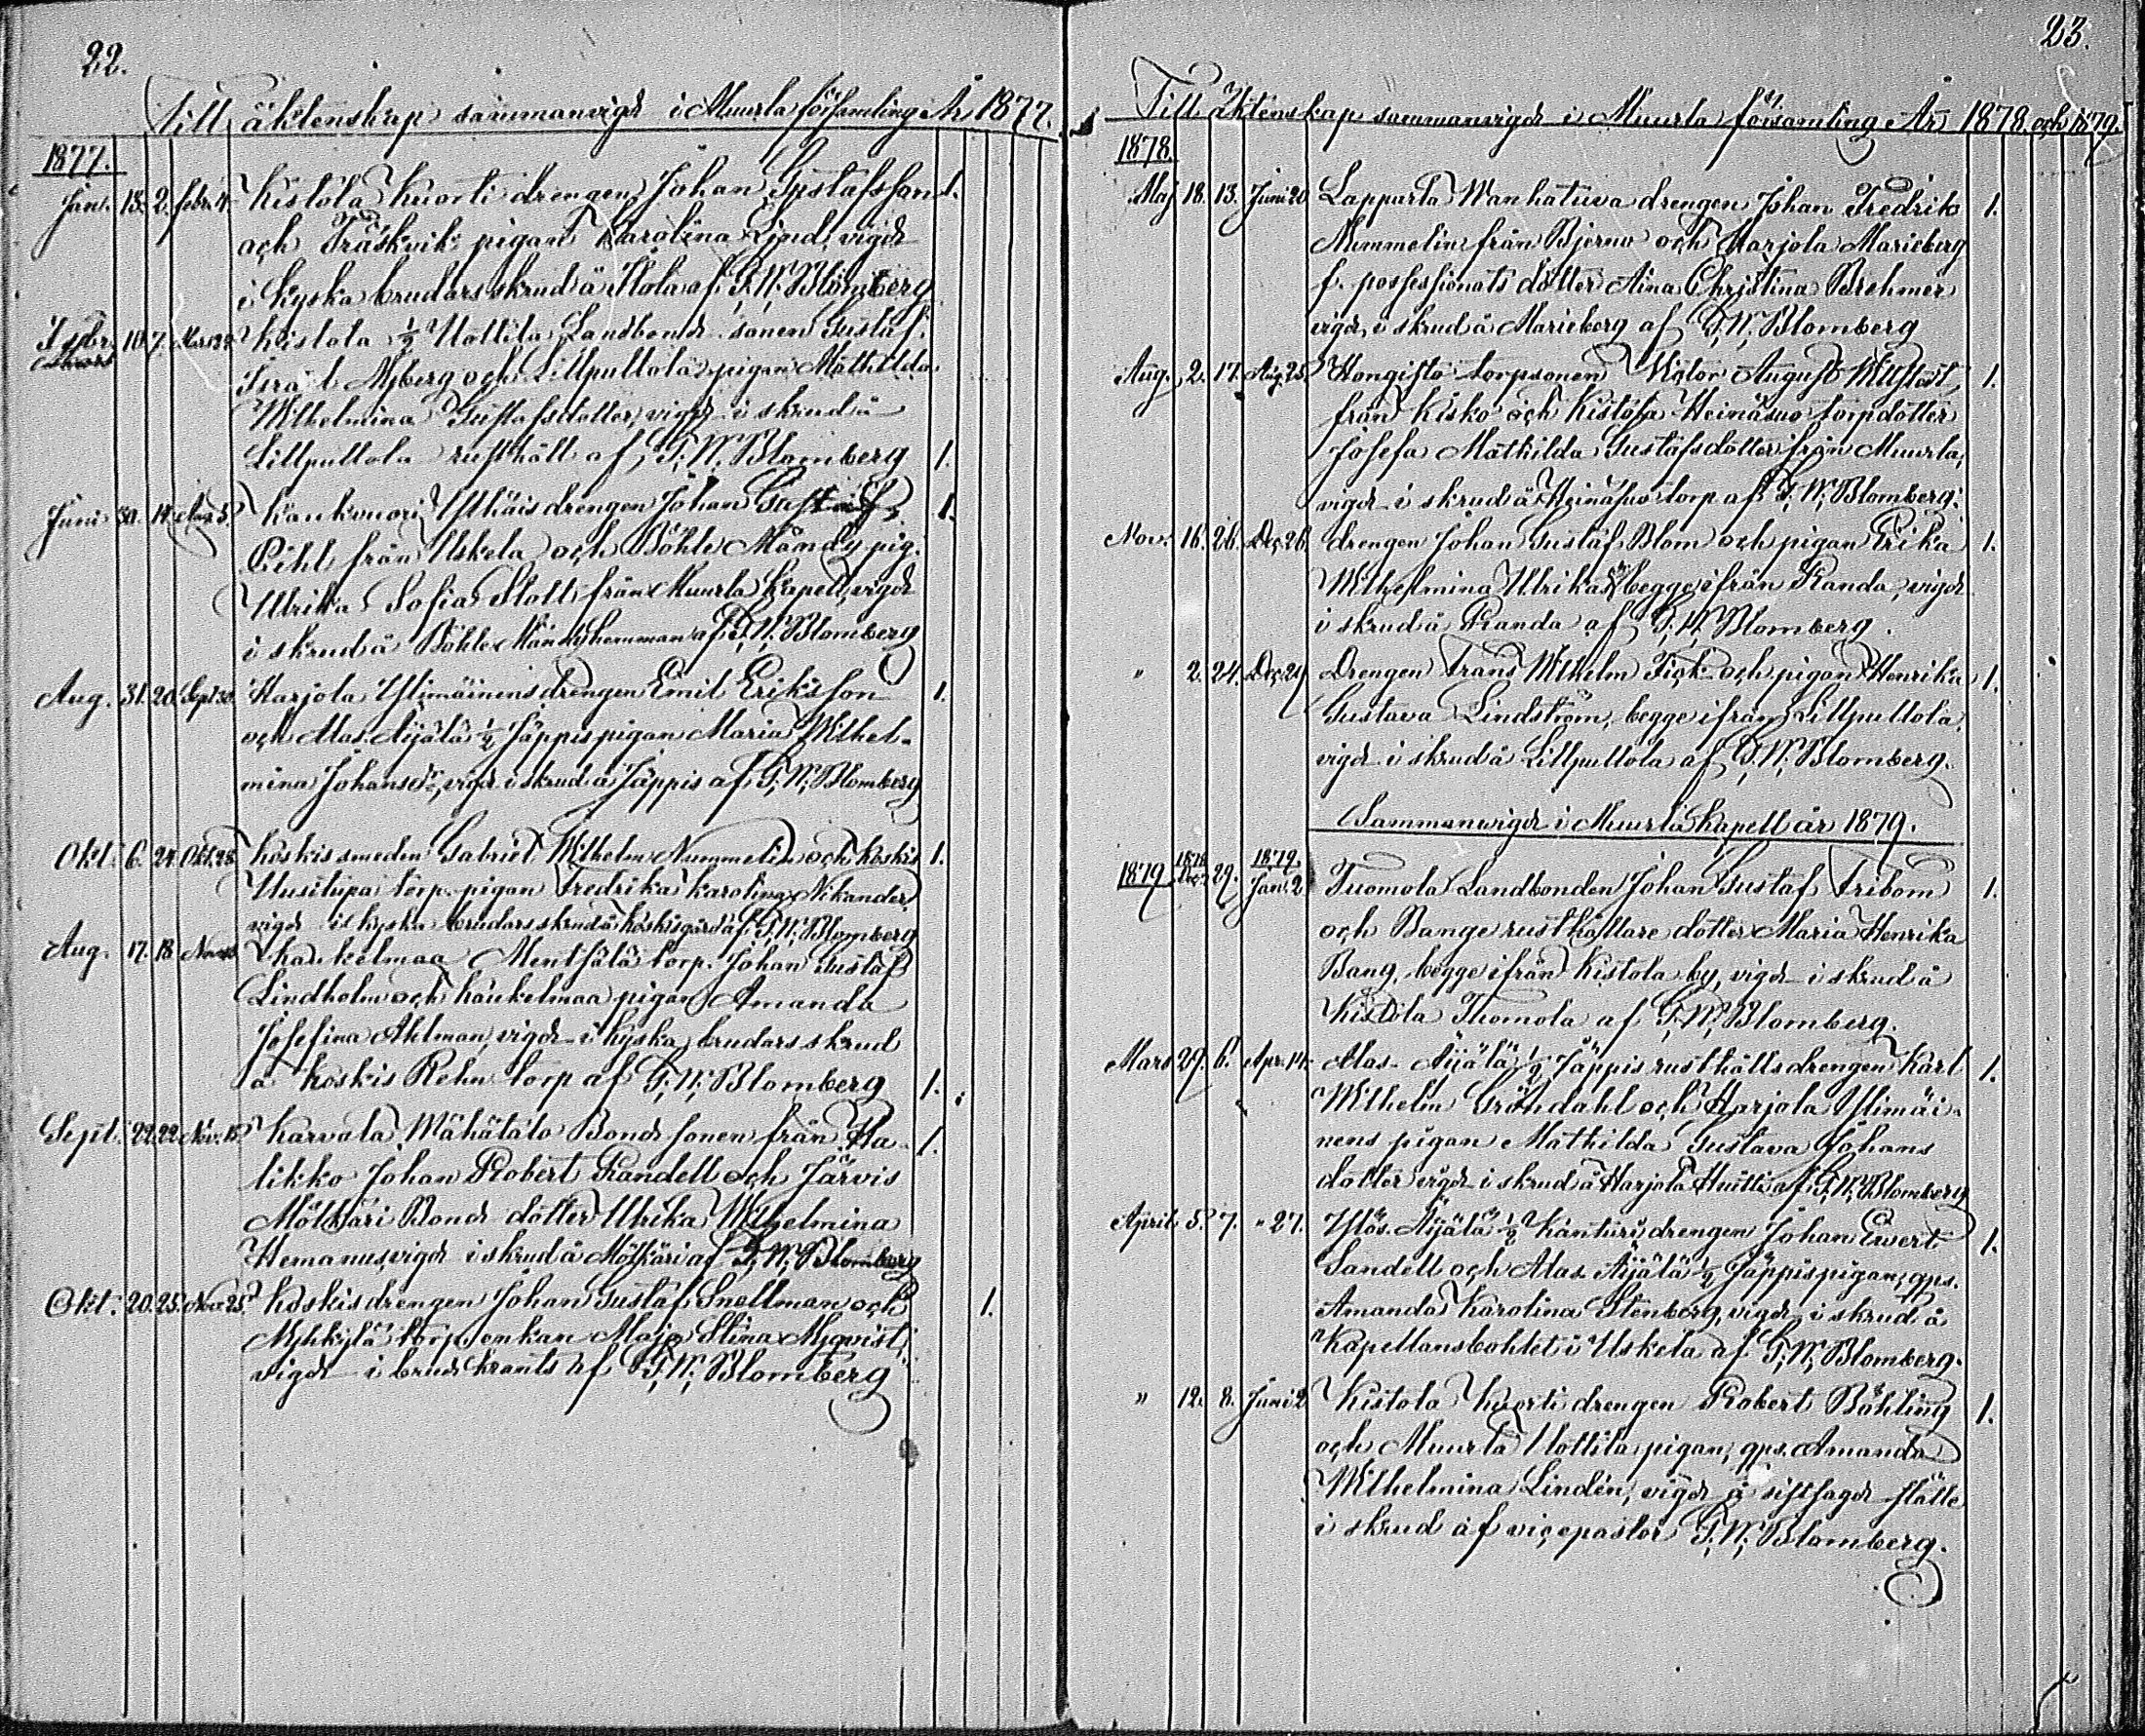 22.
Till äktenskap sammanvigd i Muurla församling År 1877.
1877.
Jan. 13. 2. Febr. 4. Kistola Kuorti drengen Johan Gustafsson 1.
och Träskvik pigan Karolina Lind, vigd
i kyska brudars skrud å Ilola af G. W. Blomberg
Febr. 10. 7. Kistola 1/2 Uottila Landbond sonen Gustaf
Myberg och Lillpullola pigan Mathilda
Wilhelmina Gustafsdotter, vigd i skrud å
Lillpullola rusthåll af G. W. Blomberg 1.
Juni 30. 14. Aug. 5. Kaukvuori Ylhäis drengen Johan Gustaf 1.
Pihl från Uskela och Böhle Mändy pig.
Ulrika Sofia Slott från Muurla Kapell, vigd
i skrud å Böhle Mändy hemman af G. W. Blomberg
Aug. 31. 20. Sept. 30. Harjola Ylimäinens drengen Emil Eriksson 1.
och Alas Äijälä 1/2 Jäppis pigan Maria Wilhel-
mina Johansdr, vigd i skrud å Jäppis af G. W. Blomberg
Okt. 6. 24. Okt. 28. Koskis smeden Gabriel Wilhelm Nummelin och Koskis 1.
Uusitupa torp. pigan Fredrika Karolina Nikander,
vigd i kyska brudars skrud å Koskis gård af G. W. Blomberg
Aug. 17. 18. Kaukelmaa Mentsälä torp. Johan Gustaf
Lindholm och Kaukelmaa pigan Amanda
Josefina Ahlman, vigd i kyska brudars skrud
å Koskis Rehn torp af G. W. Blomberg 1.
Sept. 22. 22. Nov. 15. Karvala Mähätalo Bond sonen från Ha- 1.
likko Johan Robert Randell och Järvis
Mölkäri Bond dotter Ulrika Wilhelmina
Hemanus, vigd i skrud å Mölkäri af G. W. Blomberg
Okt. 20. 25. Nov. 25. Koskis drengen Johan Gustaf Snellman och 1.
Myhkylä torp. enkan Maja Stina Myqvist,
vigd i brud krants af G. W. Blomberg
23.
Till äktenskap sammanvigd i Muurla församling År 1878. och 1879.
1878.
Maj 18. 13. Juni 20 Lapparla Wanhatuva drengen Johan Fredrik 1.
Nummelin från Bjerno och Harjola Marieberg
f. possessionats dotter Aina Christina Brehmer
vigd i skrud å Marieberg af G. W. Blomberg
Aug. 2. 17. Aug. 25. Hongisto torpsonen Viktor August
från Kisko och Kistola Heinäsuo torpdotter
Josefa Mathilda Gustafsdotter från Muurla,
vigd i skrud å Heinäsuo torp af G. W. Blomberg.
Nov. 16. 26. Dec. 26. drengen Johan Gustaf Blom och pigan Erika 1.
Wilhelmina Ulrikadr begge ifrån Randa, vigd
i skrud å Randa af G. W. Blomberg.
" 2. 24. Dec. 29 Drengen Frans Wilhelm Fick och pigan Henrika 1.
Gustava Lindström, begge ifrån Lillpullola
vigd i skrud å Lillpullola af G. W. Blomberg.
Sammanvigd i Muurla Kapell år 1879.
1879 1878 Dec. 29. 1879. Jan. 2. Tuomola Landbonden Johan Gustaf Fribom 1.
och Bange rusthållare dotter Maria Henrika
Bang, begge ifrån Kistola by, vigd i skrud å
Kistola Thomola af G. W. Blomberg.
Mars 29. 6. Apr. 14. Alas Äijälä 1/2 Jäppis rusthålls drengen Karl 1.
Wilhelm Gröndahl och Harjola Ylimäi-
nens pigan Mathilda Gustava Johans
dotter vigd i skrud å Harjola Huitti af G. W. Blomberg
April 5. 7. " 27. Ylös Äijälä 1/2 Kanturi drengen Johan Evert 1.
Sandell och Alas Äijälä 1/2 Jäppis pigan, qps.
Amanda Karolina Stenberg, vigd i skrud å
Kapellansbohlet i Uskela af G. W. Blomberg.
" 12. 8. Juni 2 Kistola Kuorti drengen Robert Böhling 1.
och Muurla Uottila pigan, qps. Amanda
Wilhelmina Lindén, vigd å sistsagd ställe
i skrud af vicepastor G. W. Blomberg.